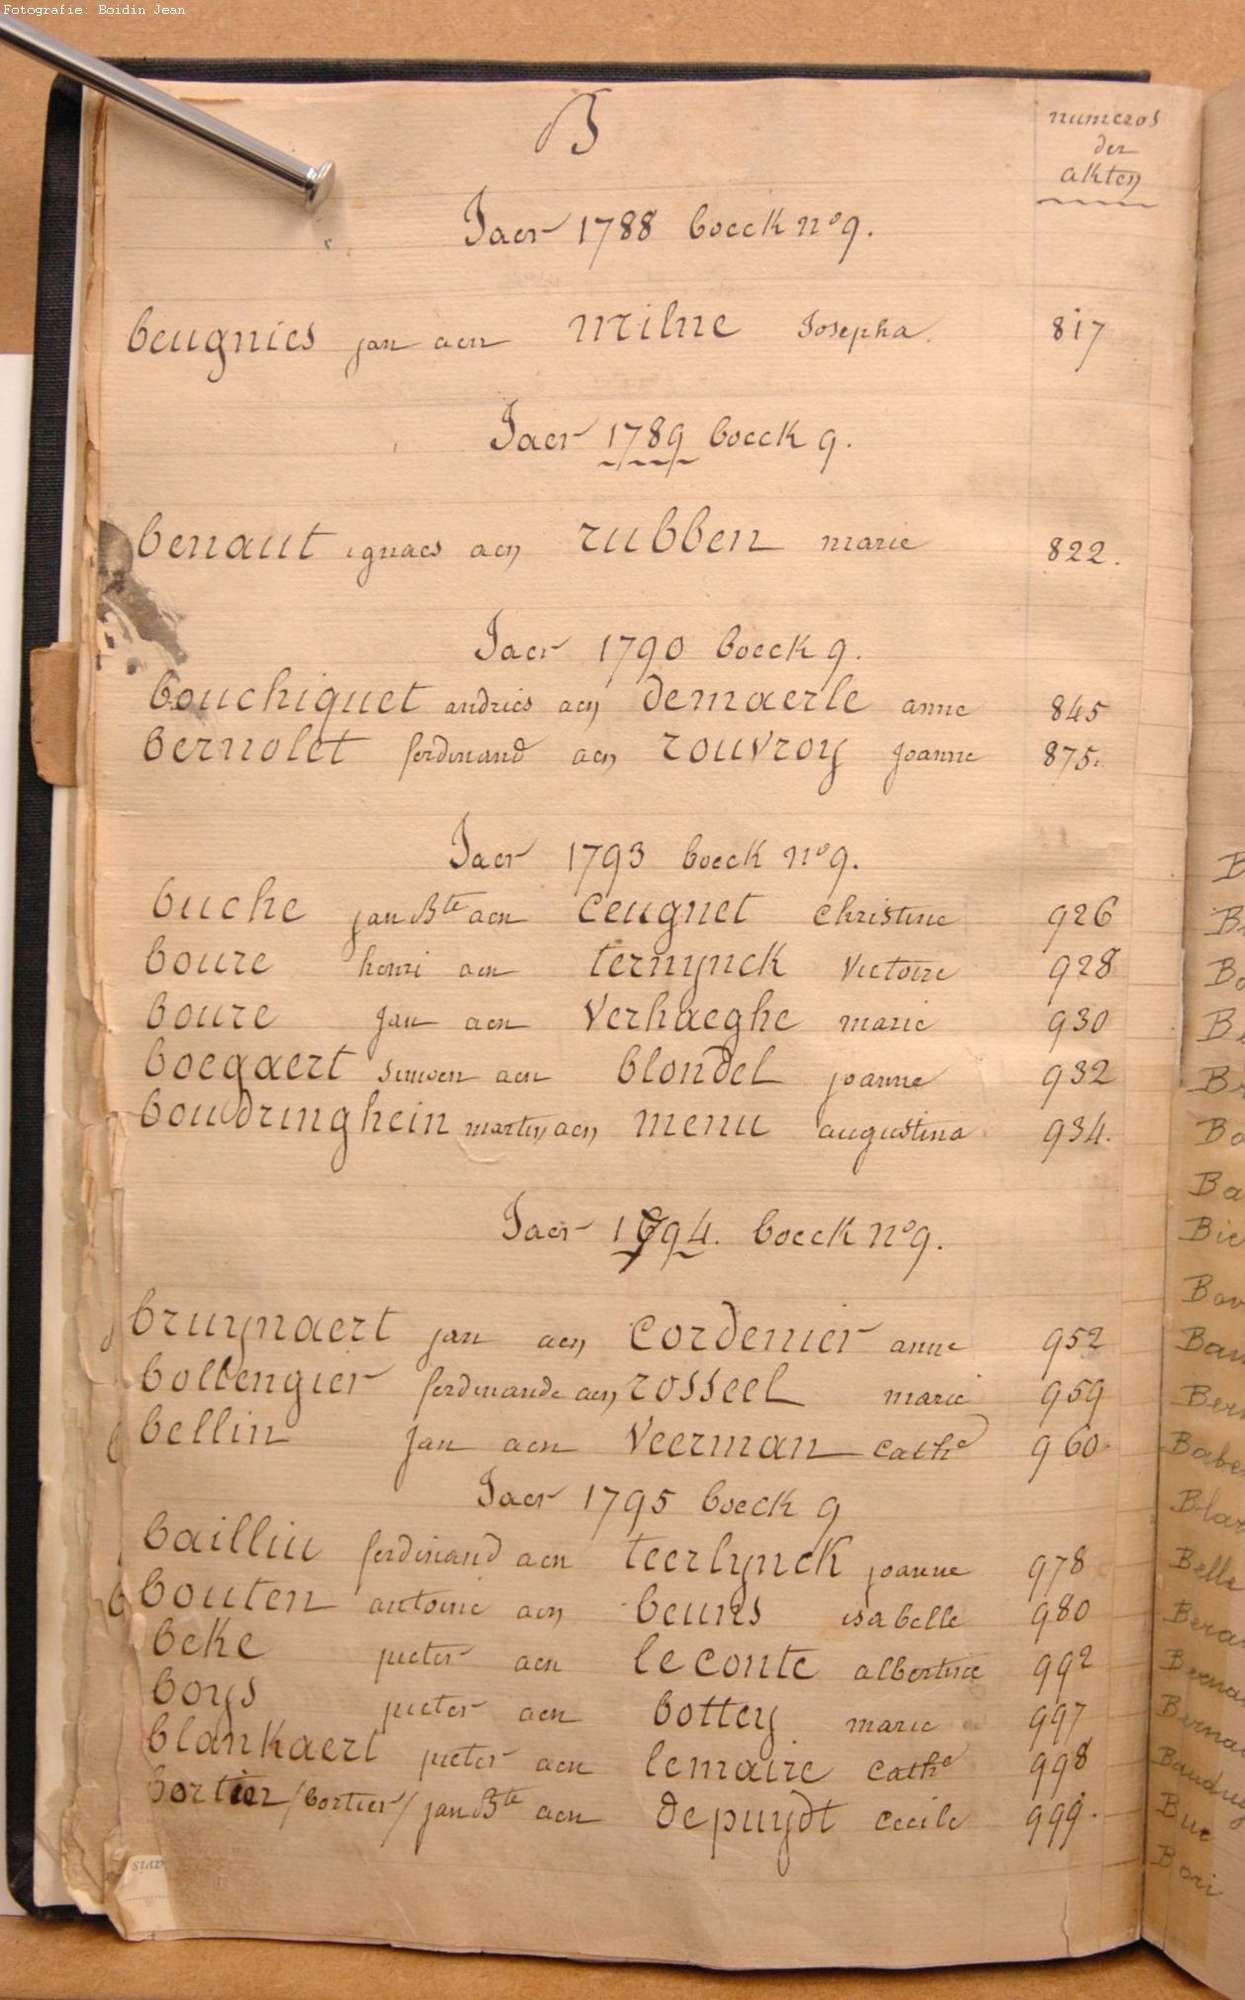 Fotografie: Boidin Jean
B
numeros
der
akten
Jaer 1788 boeck nº 9.
beugnies jan aen milne Josepha. 817
Jaer 1789 boeck 9.
benaut ignaes aen rubben marie 822.
Jaer 1790 boeck 9.
bouchiquet andries aen demaerle anne 845
bernolet ferdinand aen rouvroy Joanne 875.
Jaer 1793 boeck nº 9.
buche jan Bte aen ceugnet christine 926
boure henri aen ternynck victoire 928
boure Jan aen verhaeghe marie 930
boegaert simoen aen blondel joanne 932
boudringhein martin aen menu augustina 934.
Jaer 1794. boeck nº 9.
bruynaert jan aen cordenier anne 952
bollengier ferdinande aen rosseel marie 959
bellin Jan aen veerman cathe 960.
Jaer 1795 boeck 9
bailliu ferdinand aen teerlynck joanne 978
bouten antoine aen beuns isabelle 980
beke pieter aen leconte albertine 992
boys pieter aen bottey marie 997
blankaert pieter aen lemaire cathe 998
bortier /bortier/ jan Bte aen depuydt cecile 999.